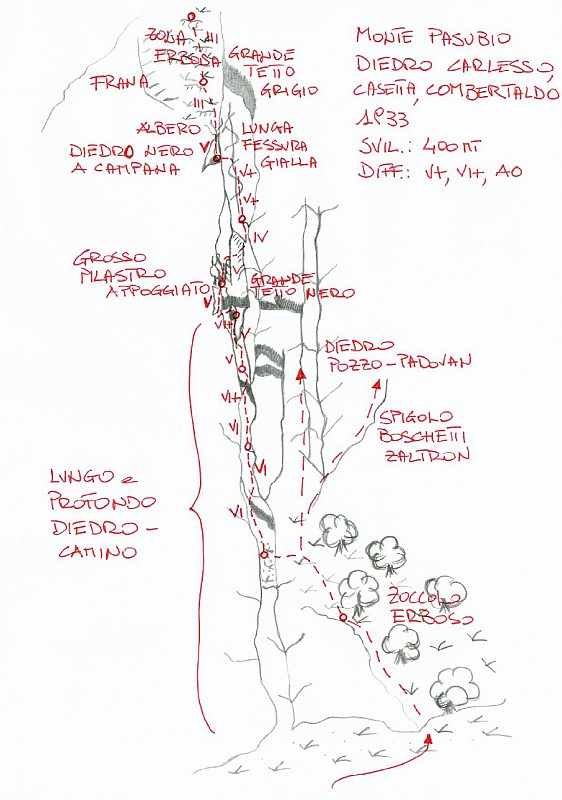 MONTE PASUBIO
DIEDRO CARLESSO,
CASETTA, COMBERTALDO
1933
SVIL.: 400 MT
DIFF.: V+, VI+, A0
ZONA III
ERBOSA
FRANA
III
GRANDE
TETTO
GRIGIO
ALBERO
V
DIEDRO NERO
A CAMPANA
LUNGA
FESSURA
GIALLA
V+
V+
IV
GROSSO
PILASTRO
APPOGGIATO
V
V
GRANDE
TETTO NERO
VI+
V
V
DIEDRO
POZZO-PADOVAN
VI+
VI
VI
SPIGOLO
BOSCHETTI
ZALTRON
VI
LUNGO e
PROFONDO
DIEDRO-
CAMINO
ZOCCOLO
ERBOSO